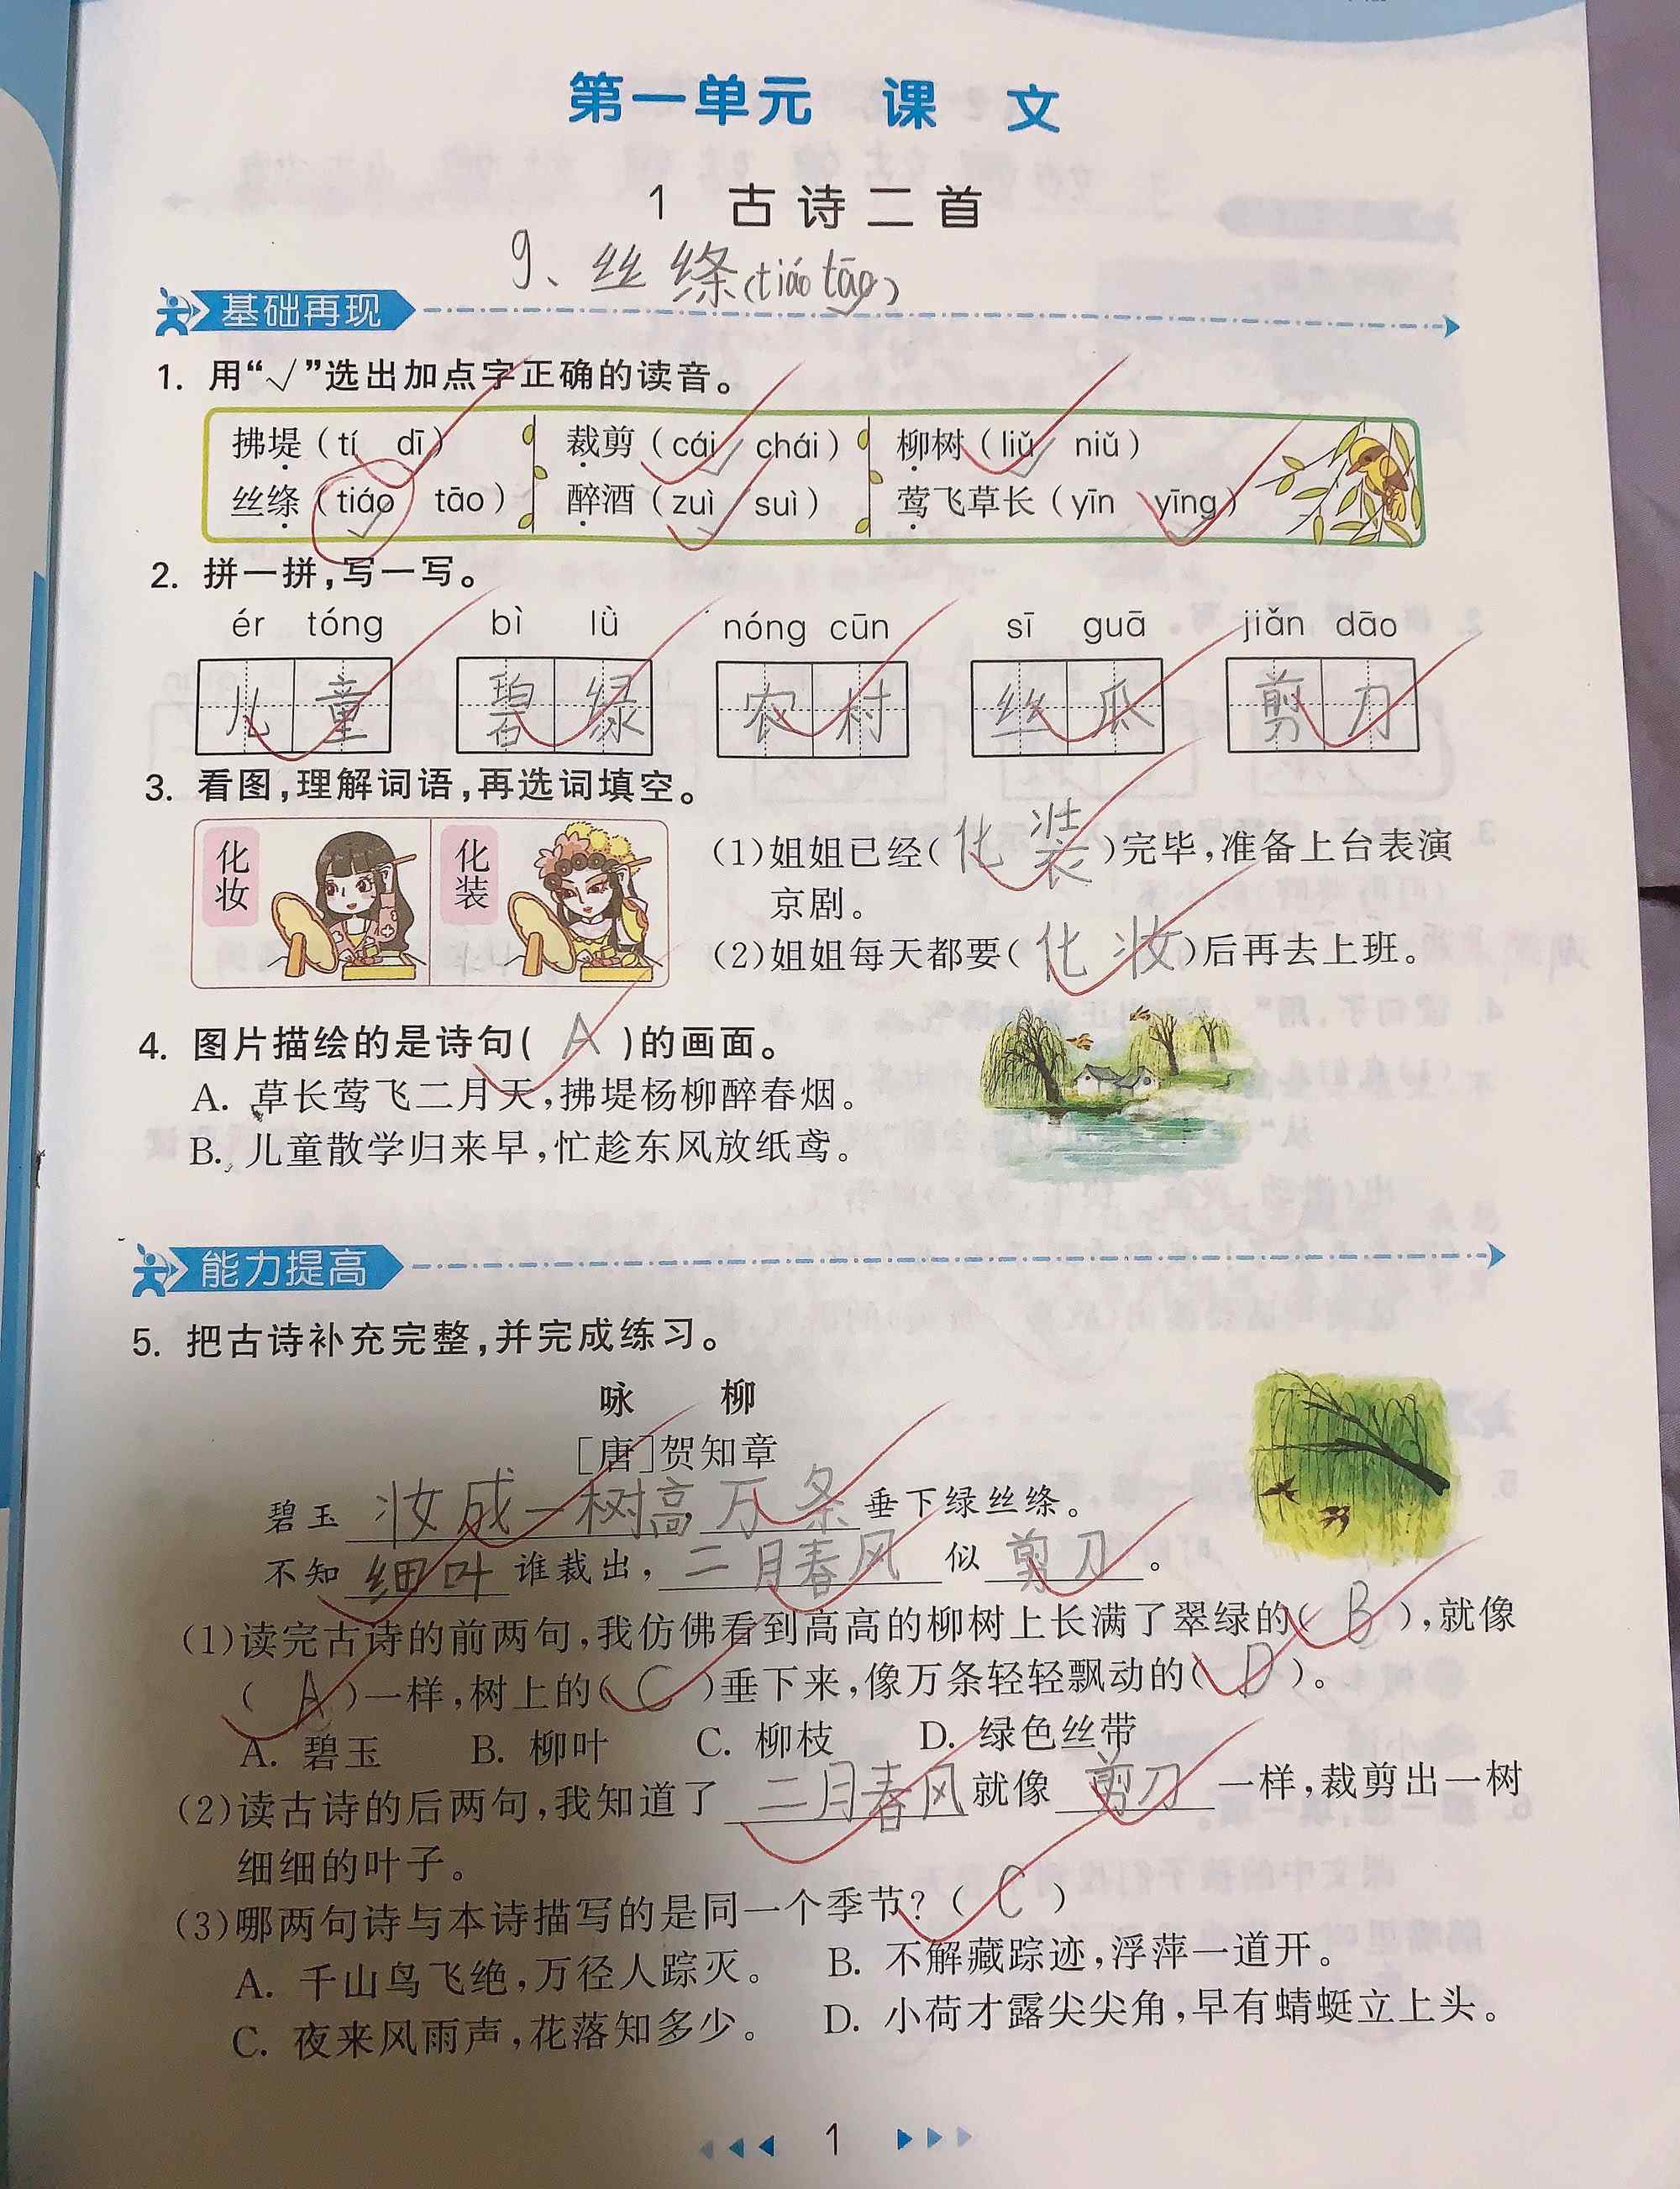 第一单元 课 文
1 古诗二首
9、丝绦(tiáo tāo)
基础再现
1. 用“√”选出加点字正确的读音。
拂堤(tí dī) 裁剪(cái chái) 柳树(liǔ niǔ)
丝绦(tiáo tāo) 醉酒(zuì suì) 莺飞草长(yīn yīng)
2. 拼一拼,写一写。
ér tóng bì lǜ nóng cūn sī guā jiǎn dāo
儿童 碧绿 农村 丝瓜 剪刀
3. 看图,理解词语,再选词填空。
化妆 化装
(1)姐姐已经(化装)完毕,准备上台表演
京剧。
(2)姐姐每天都要(化妆)后再去上班。
4. 图片描绘的是诗句( A )的画面。
A. 草长莺飞二月天,拂堤杨柳醉春烟。
B. 儿童散学归来早,忙趁东风放纸鸢。
能力提高
5. 把古诗补充完整,并完成练习。
咏 柳
[唐]贺知章
碧玉妆成一树高,万条垂下绿丝绦。
不知细叶谁裁出,二月春风似剪刀。
(1)读完古诗的前两句,我仿佛看到高高的柳树上长满了翠绿的( B ),就像
( A )一样,树上的( C )垂下来,像万条轻轻飘动的( D )。
A. 碧玉 B. 柳叶 C. 柳枝 D. 绿色丝带
(2)读古诗的后两句,我知道了二月春风就像剪刀一样,裁剪出一树
细细的叶子。
(3)哪两句诗与本诗描写的是同一个季节?( C )
A. 千山鸟飞绝,万径人踪灭。 B. 不解藏踪迹,浮萍一道开。
C. 夜来风雨声,花落知多少。 D. 小荷才露尖尖角,早有蜻蜓立上头。
1